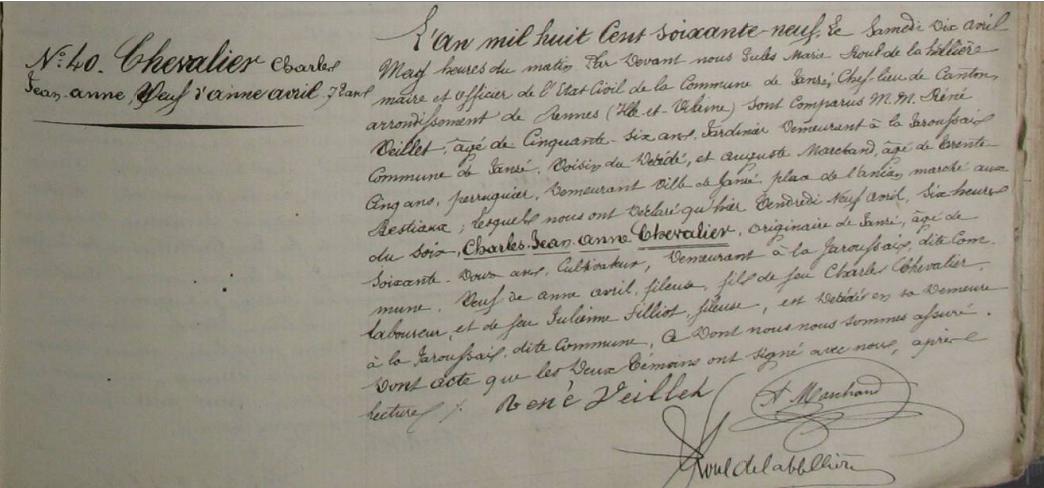 N.º 40. Chevalier Charles
Jean-anne, Veuf d'anne avril, 72 ans
L'An mil huit Cent soixante-neuf, Le Samedi Dix avril
Neuf heures du matin Par Devant nous Jules Marie Roul de la
maire et officier de l'Etat Civil de la Commune de Janzé, Chef-lieu de Canton,
arrondissement de Rennes (Ille-et-Vilaine) sont Comparus M.M. Réné
Veillet, âgé de Cinquante-six ans, Jardinier Demeurant à la Jaroussais
Commune de Janzé, Voisin du Décédé, et auguste Marchand, âgé de trente
Cinq ans, perruquier, Demeurant Ville de Janzé, place de l'ancien marché aux
Bestiaux; lesquels nous ont Déclaré qu'hier Vendredi Neuf avril, six heures
du soir, Charles-Jean-anne Chevalier, originaire de Janzé, âgé de
soixante-Douze ans, Cultivateur, Demeurant à la Jaroussais, dite Com-
mune, Veuf de anne avril, fileuse, fils de feu Charles Chevalier,
laboureur, et de feu Julienne, fileuse, est Décédé en sa Demeure
à la Jaroussais, dite Commune, Ce Dont nous nous sommes assuré.
Dont acte que les Deux Témoins ont signé avec nous, après
lecture/.
René Veillet
A Marchand